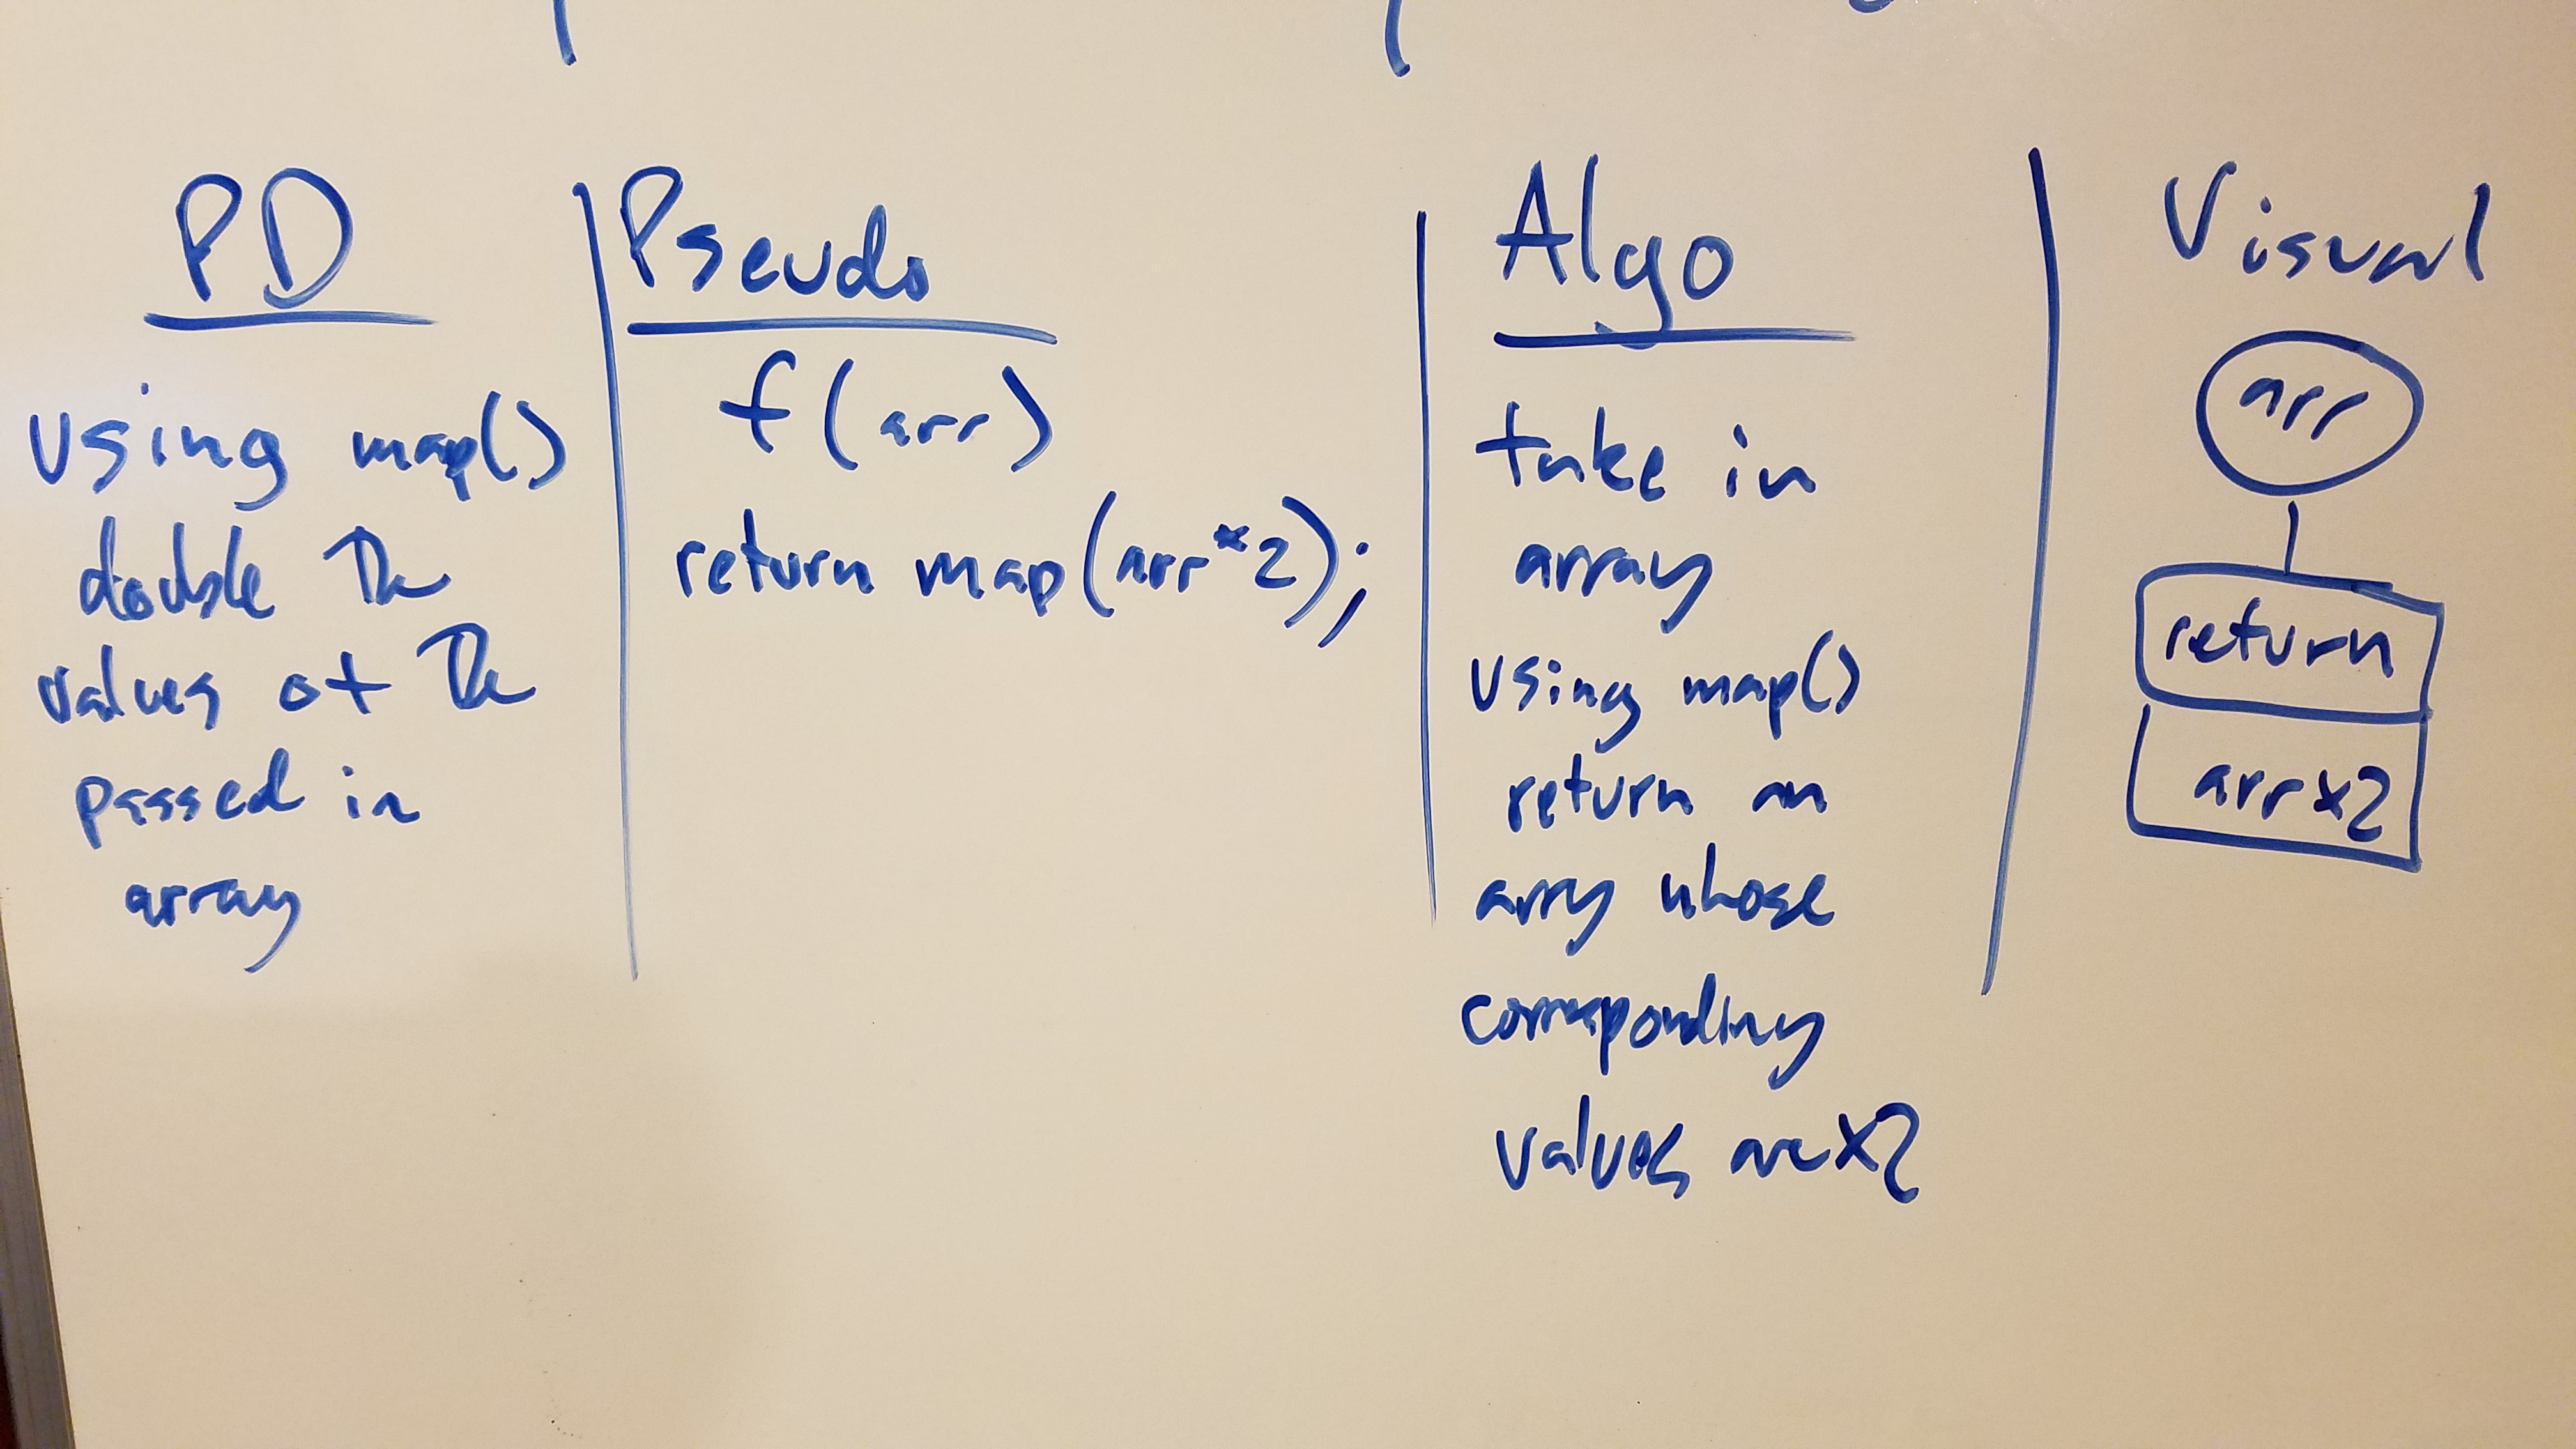 PD
using map()
double the
values of the
passed in
array
Pseudo
f(arr)
return map(arr*2);
Algo
take in
array
using map()
return an
arry whose
corresponding
values are x2
Visual
arr
return
arr x2